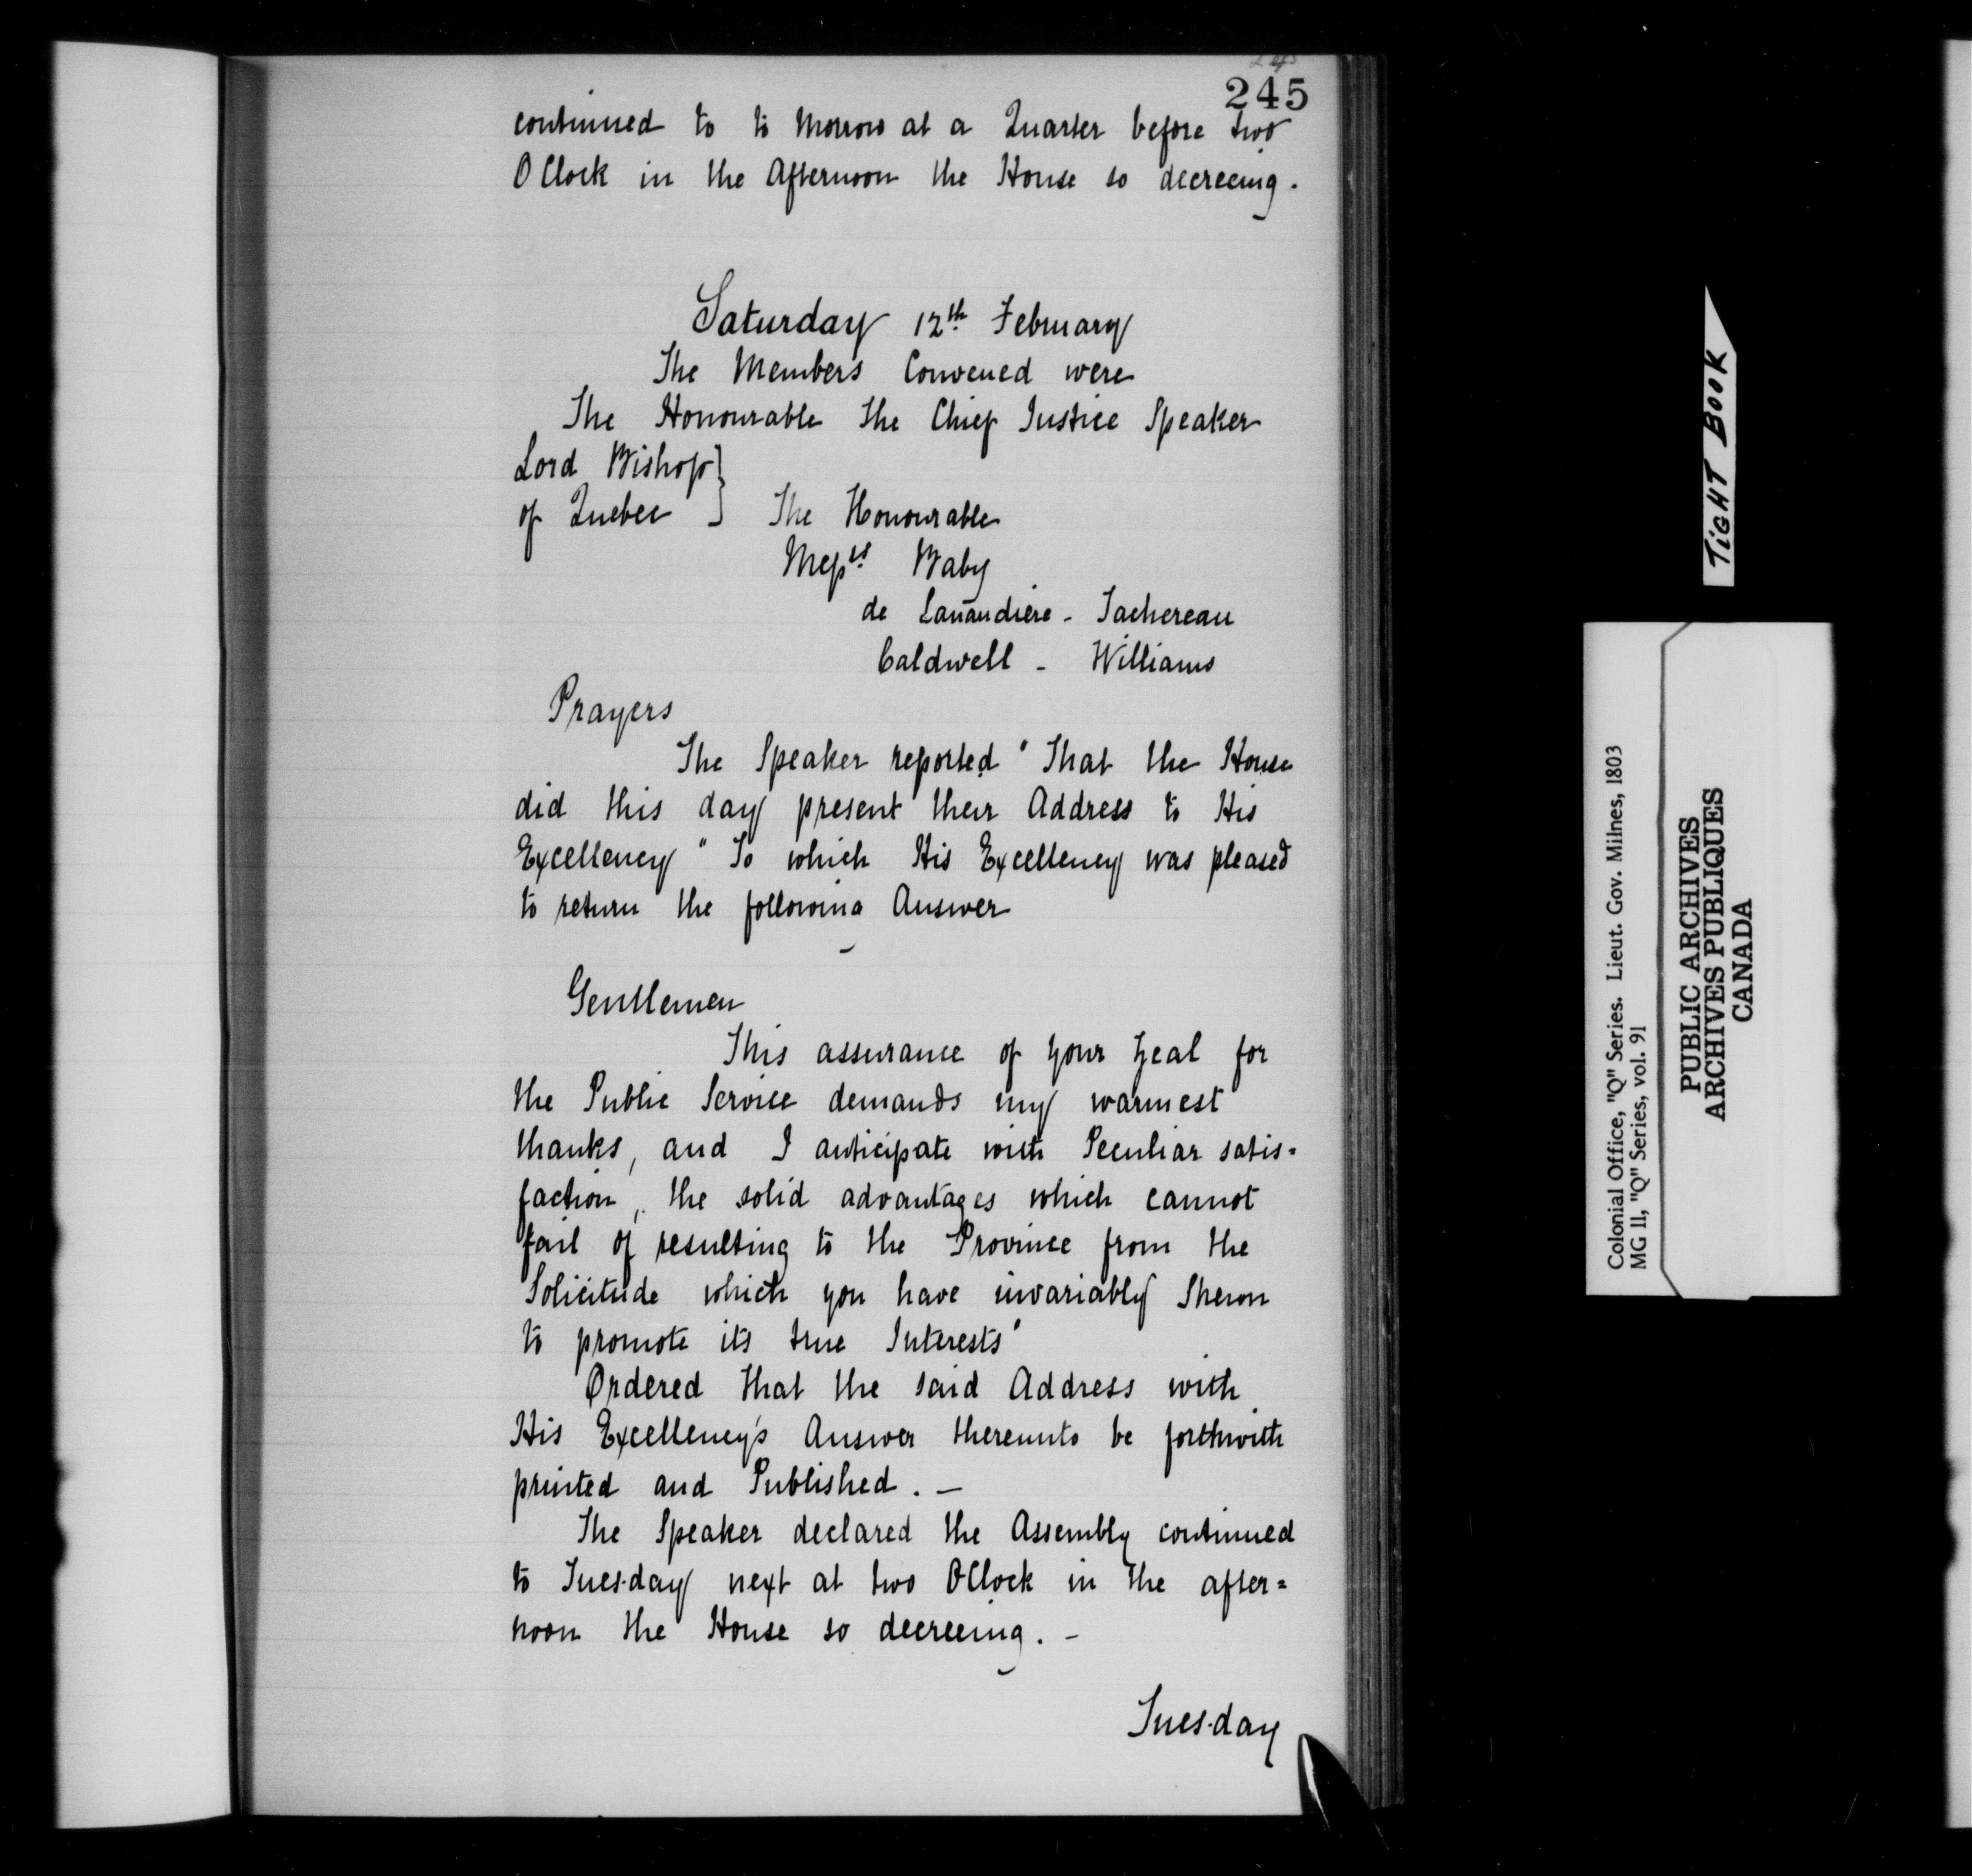 245
continued to to Morrow at a Quarter before two
O Clock in the Afternoon the House so decreeing.
Saturday 12th. February
The Members Convened were
The Honourable The Chief Justice Speaker
Lord Bishop }
of Quebec } The Honourable
Messrs. Baby
de Lanaudière - Tachereau
Caldwell - Williams
Prayers
The Speaker reported "That the House
did this day present their Address to His
Excellency" To which His Excellency was pleased
to return the following Answer
Gentlemen
This assurance of your Zeal for
the Public Service demands my warmest
thanks, and I anticipate with Peculiar satis=
faction, the solid advantages which cannot
fail of resulting to the Province from the
Solicitude which you have invariably Shewn
to promote its true Interests"
Ordered that the said Address with
His Excellency's Answer thereunto be forthwith
printed and Published. -
The Speaker declared the Assembly continued
to Tuesday next at two OClock in the after=
noon the House so decreeing. -
Tuesday
TIGHT BOOK
Colonial Office, "Q" Series. Lieut. Gov. Milnes, 1803
MG 11, "Q" Series, vol. 91
PUBLIC ARCHIVES
ARCHIVES PUBLIQUES
CANADA